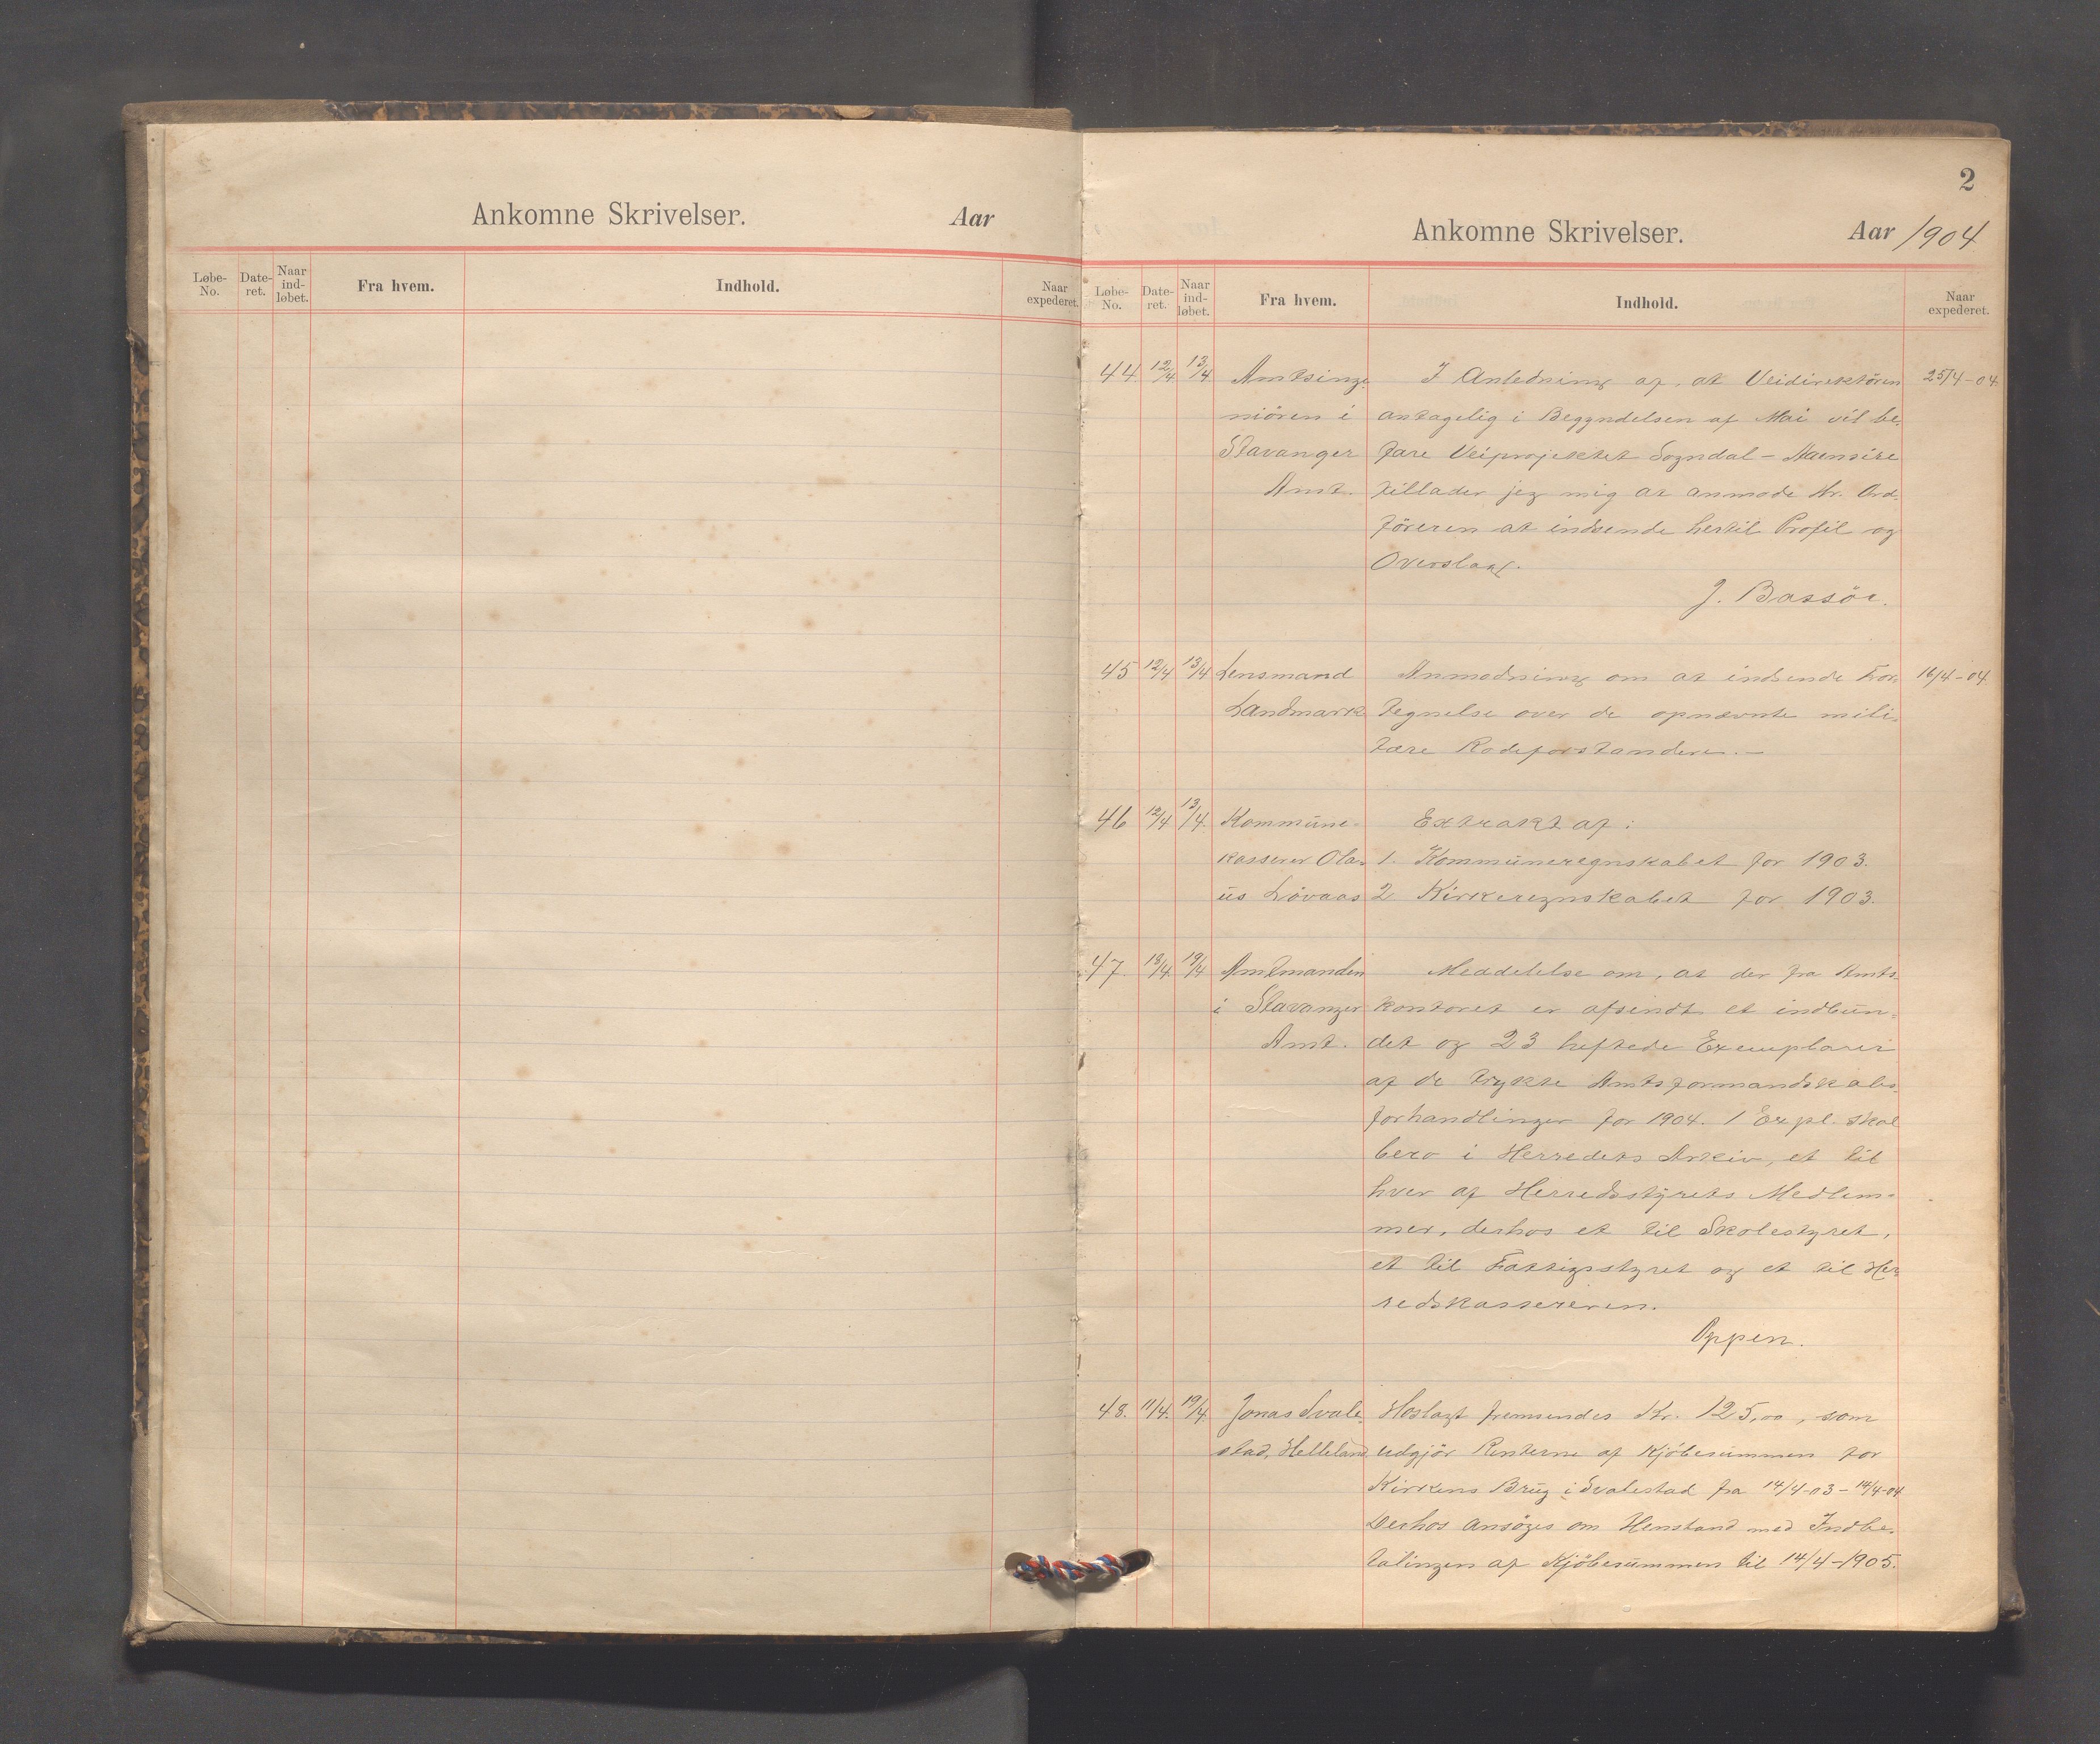 Ankomne Skrivelser.
Aar
Løbe-No.
Date-ret.
Naar ind-løbet.
Fra hvem.
Indhold.
Naar expederet.
2
Ankomne Skrivelser.
Aar 1904
Løbe-No.
Date-ret.
Naar ind-løbet.
Fra hvem.
Indhold.
Naar expederet.
44. 12/4 13/4 Amtsinge- I Anledning af, at Veidirektören 25/4-04.
niören i antagelig i Begyndelsen af Mai vil be-
Stavanger fare Veiprojektet Sogndal –
Amt. tillader jeg mig at anmode Hr. Ord-
föreren at indsende hertil Profil og
Overslag.
J. Bassöe.
45 12/4 13/4 Lensmand Anmodning om at indsende For- 16/4-04.
Landmark tegnelse over de opnævnte mili-
tære Rodeforstandere.—
46 12/4 13/4. Kommune- Extrakt af:
kasserer Ola- 1. Kommuneregnskabet for 1903.
us Lövaas 2 Kirkeregnskabet for 1903.
47. 18/4. 19/4 Amtmanden Meddelelse om, at der fra Amts-
i Stavanger kontoret er afsendt et indbun-
Amt. det og 23 heftede Exemplarer
af de trykte Amtsformandskabs-
forhandlinger for 1904. 1 Expl. skal
bero i Herredets Arkiv, et til
hver af Herredsstyrets Medlem-
mer, derhos et til Skolestyret,
et til Fattigstyret og et til Her-
redskassereren.
Oppen.
48. 11/4. 19/4. Jonas Svale- Hoslagt fremsendes Kr. 125,00, som
stad, Helleland udgjör Renterne af Kjöbesummen for
Kirkens Brug i Svalestad fra 14/4-03 – 14/4-04
Derhos ansöges om Henstand med Indbe-
talingen af Kjöbesummen til 14/4-1905.